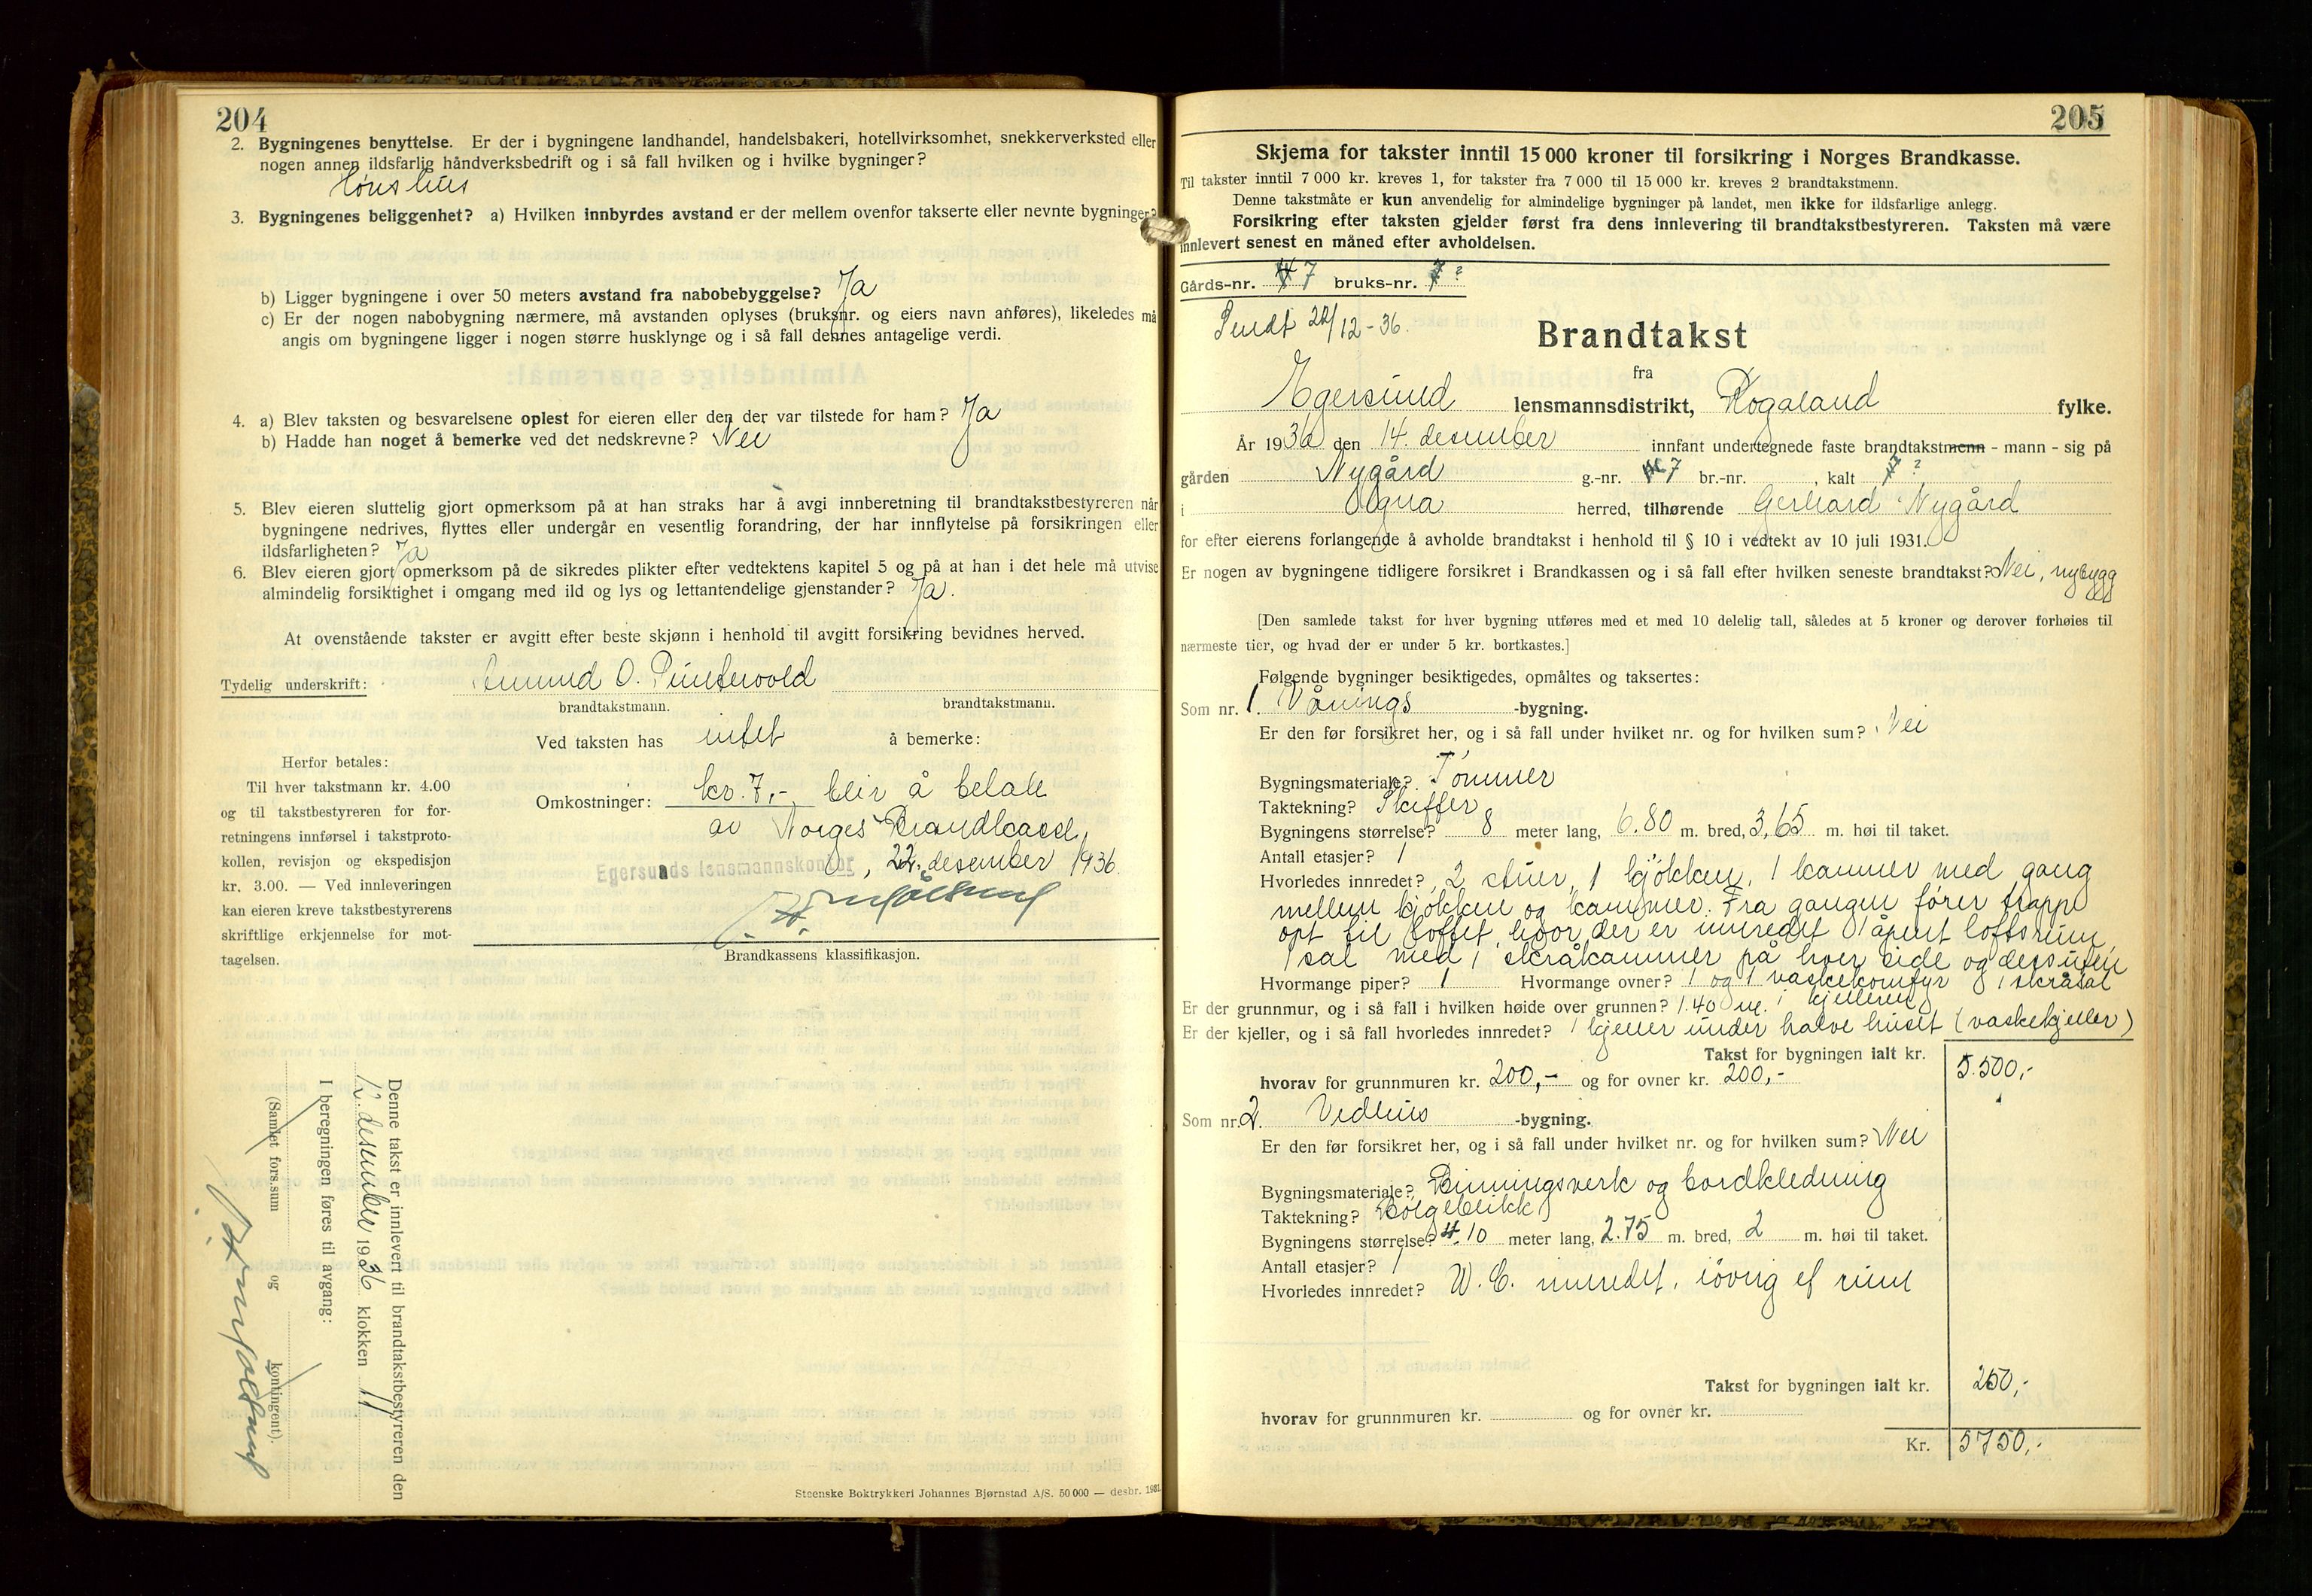 204
2. Bygningenes benyttelse. Er der i bygningene landhandel, handelsbakeri, hotellvirksomhet, snekkerverksted eller
nogen annen ildsfarlig håndverksbedrift og i så fall hvilken og i hvilke bygninger?
Hønshus
3. Bygningenes beliggenhet? a) Hvilken innbyrdes avstand er der mellem ovenfor takserte eller nevnte bygninger?
b) Ligger bygningene i over 50 meters avstand fra nabobebyggelse? Ja
c) Er der nogen nabobygning nærmere, må avstanden oplyses (bruksnr. og eiers navn anføres), likeledes må
angis om bygningene ligger i nogen større husklynge og i så fall dennes antagelige verdi.
4. a) Blev taksten og besvarelsene oplest for eieren eller den der var tilstede for ham? Ja
b) Hadde han noget å bemerke ved det nedskrevne? Nei
5. Blev eieren sluttelig gjort opmerksom på at han straks har å avgi innberetning til brandtakstbestyreren når
bygningene nedrives, flyttes eller undergår en vesentlig forandring, der har innflytelse på forsikringen eller
ildsfarligheten? Ja
6. Blev eieren gjort opmerksom på de sikredes plikter efter vedtektens kapitel 5 og på at han i det hele må utvise
almindelig forsiktighet i omgang med ild og lys og lettantendelige gjenstander? Ja.
At ovenstående takster er avgitt efter beste skjønn i henhold til avgitt forsikring bevidnes herved.
Tydelig underskrift: Amund O. Puntervold
brandtakstmann. brandtakstmann.
Ved taksten has intet å bemerke:
Herfor betales:
Til hver takstmann kr. 4.00
og til takstbestyreren for for-
retningens innførsel i takstproto-
kollen, revisjon og ekspedisjon
kr. 3.00. — Ved innleveringen
kan eieren kreve takstbestyrerens
skriftlige erkjennelse for mot-
tagelsen.
Omkostninger: kr. 7,- blir å betale
av Norges Brandkasse,
Egersunds lensmannskontor, 22. desember 1936.
Brandkassens klassifikasjon.
Denne takst er innlevert til brandtakstbestyreren den
12. desember 1936 klokken 11
I beregningen føres til avgang:
(Samlet fors.sum og kontingent).
Steenske Boktrykkeri Johannes Bjørnstad A/S. 50 000 — desbr. 1931.
205
Skjema for takster inntil 15 000 kroner til forsikring i Norges Brandkasse.
Til takster inntil 7 000 kr. kreves 1, for takster fra 7 000 til 15 000 kr. kreves 2 brandtakstmenn.
Denne takstmåte er kun anvendelig for almindelige bygninger på landet, men ikke for ildsfarlige anlegg.
Forsikring efter taksten gjelder først fra dens innlevering til brandtakstbestyreren. Taksten må være
innlevert senest en måned efter avholdelsen.
Gårds-nr. 7 bruks-nr. ?
Sendt 22/12-36.
Brandtakst
fra
Egersund lensmannsdistrikt, Rogaland fylke.
År 1936 den 14. desember innfant undertegnede faste brandtakstmenn - mann - sig på
gården Nygård g.-nr. 7 br.-nr. , kalt ?
i Ogna herred, tilhørende Gerhard Nygård
for efter eierens forlangende å avholde brandtakst i henhold til § 10 i vedtekt av 10 juli 1931.
Er nogen av bygningene tidligere forsikret i Brandkassen og i så fall efter hvilken seneste brandtakst? Nei, nybygg
[Den samlede takst for hver bygning utføres med et med 10 delelig tall, således at 5 kroner og derover forhøies til
nærmeste tier, og hvad der er under 5 kr. bortkastes.]
Følgende bygninger besiktigedes, opmåltes og taksertes:
Som nr. 1. Vånings -bygning.
Er den før forsikret her, og i så fall under hvilket nr. og for hvilken sum? Nei
Bygningsmateriale? Tømmer
Taktekning? Skiffer
Bygningens størrelse? 8 meter lang, 6.80 m. bred, 3,65 m. høi til taket.
Antall etasjer? 1
Hvorledes innredet? 2 stuer, 1 kjøkken, 1 kammer med gang
mellem kjøkken og kammer. Fra gangen fører trapp
opt til loftet, hvor der er innredet 1 åpent loftsrum,
1 sal med 1 skråkammer på hver side og dessuten
1 skråsal
Hvormange piper? 1 Hvormange ovner? 1 og 1 vaskekomfyr i kjelleren
Er der grunnmur, og i så fall i hvilken høide over grunnen? 1.40 m.
Er der kjeller, og i så fall hvorledes innredet? 1 kjeller under halve huset (vaskekjeller)
Takst for bygningen ialt kr. 5.500,-
hvorav for grunnmuren kr. 200,- og for ovner kr. 200,-
Som nr. 2. Vedhus -bygning.
Er den før forsikret her, og i så fall under hvilket nr. og for hvilken sum? Nei
Bygningsmateriale? Binningsverk og bordkledning
Taktekning? Bølgeblikk
Bygningens størrelse? 4.10 meter lang, 2.75 m. bred, 2 m. høi til taket.
Antall etasjer? 1
Hvorledes innredet? W.C. innredet, iøvrig et rum
Takst for bygningen ialt kr. 250,-
hvorav for grunnmuren kr. og for ovner kr.
Kr. 5750,-